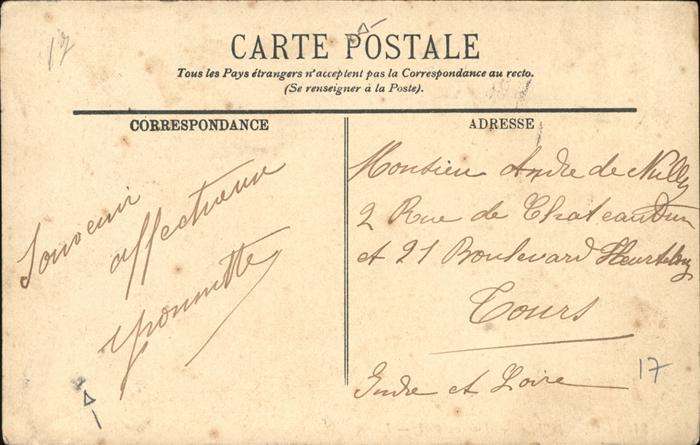 17
CARTE POSTALE
Tous les Pays étrangers n'acceptent pas la Correspondance au recto.
(Se renseigner à la Poste).
CORRESPONDANCE
ADRESSE
Souvenir
affectueux
Yvonnette
Monsieur Andre de Nully
2 Rue de Chateaudun
et 21 Boulevard Heurteloup
Tours
Indre et Loire
17